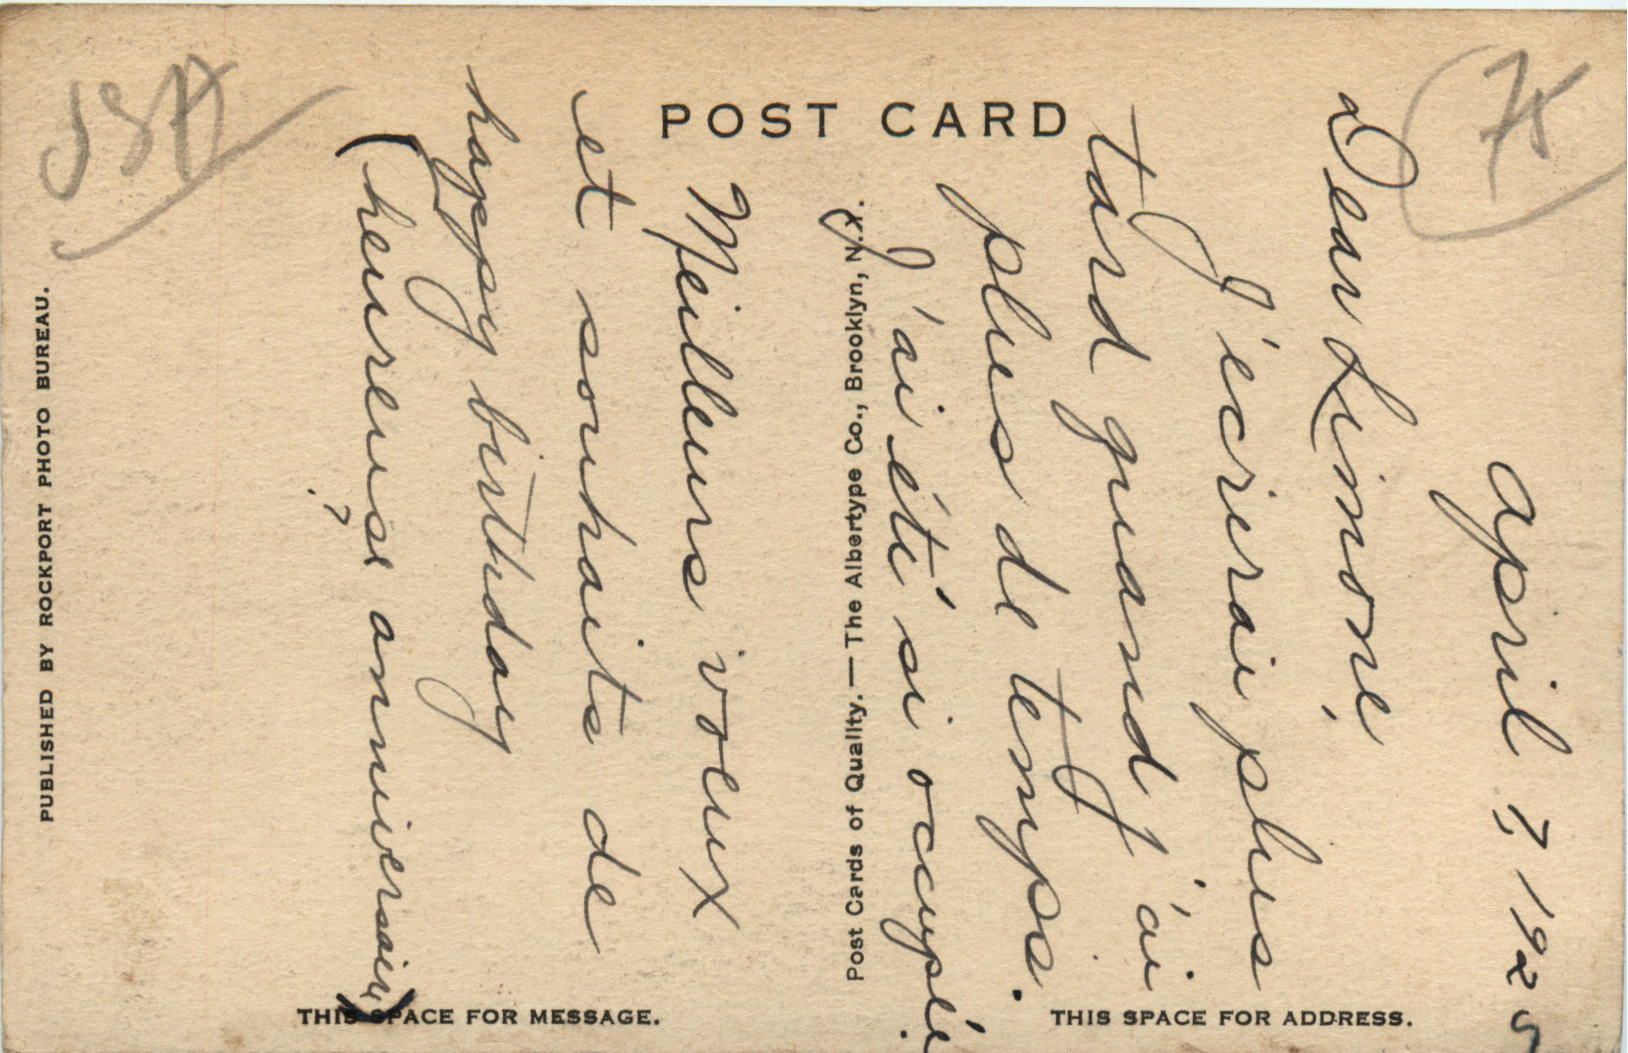 April 7, 1925
Dear Simone,
J'ecrirai plus
tard quand j'ai
plus de temps.
J'ai été si occupée.
Meilleurs voeux
et souhaits de
happy birthday
(heureuse anniversaire)
?
POST CARD
Post Cards of Quality.—The Albertype Co., Brooklyn, N.Y.
THIS SPACE FOR MESSAGE.
THIS SPACE FOR ADDRESS.
PUBLISHED BY ROCKPORT PHOTO BUREAU.
75